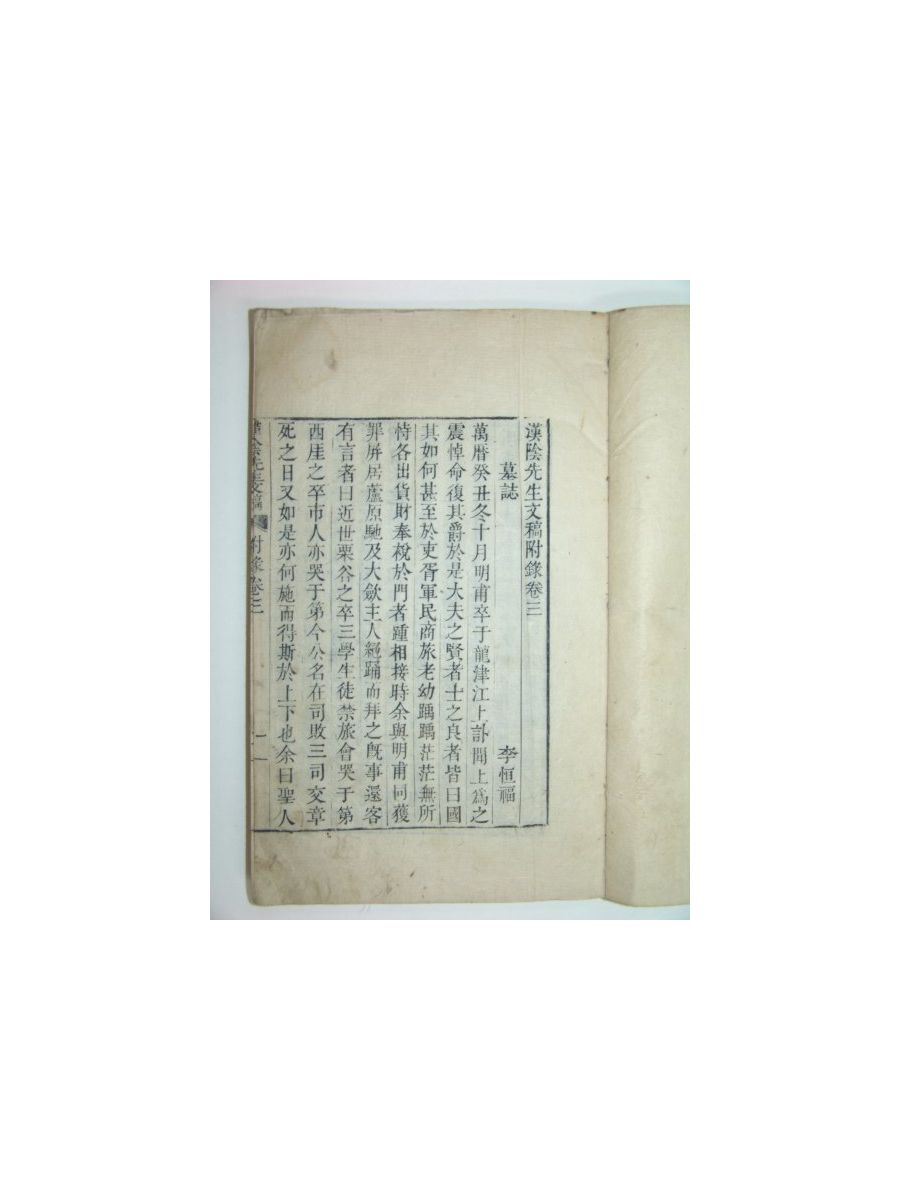 漢陰先生文稿附錄卷三
墓誌 李恒福
萬曆癸丑冬十月明甫卒于龍津江上訃聞上爲之
震悼命復其爵於是大夫之賢者士之良者皆曰國
其如何甚至於吏胥軍民商旅老幼踽踽茫茫無所
恃各出貨財奉稅於門者踵相接時余與明甫同獲
罪屏居蘆原馳及大歛主人絰踊而拜之旣事還客
有言者曰近世栗谷之卒三學生徒禁旅會哭于第
西厓之卒市人亦哭于第今公名在司敗三司交章
死之日又如是亦何施而得斯於上下也余曰聖人
漢陰先生文稿 附錄卷三 一